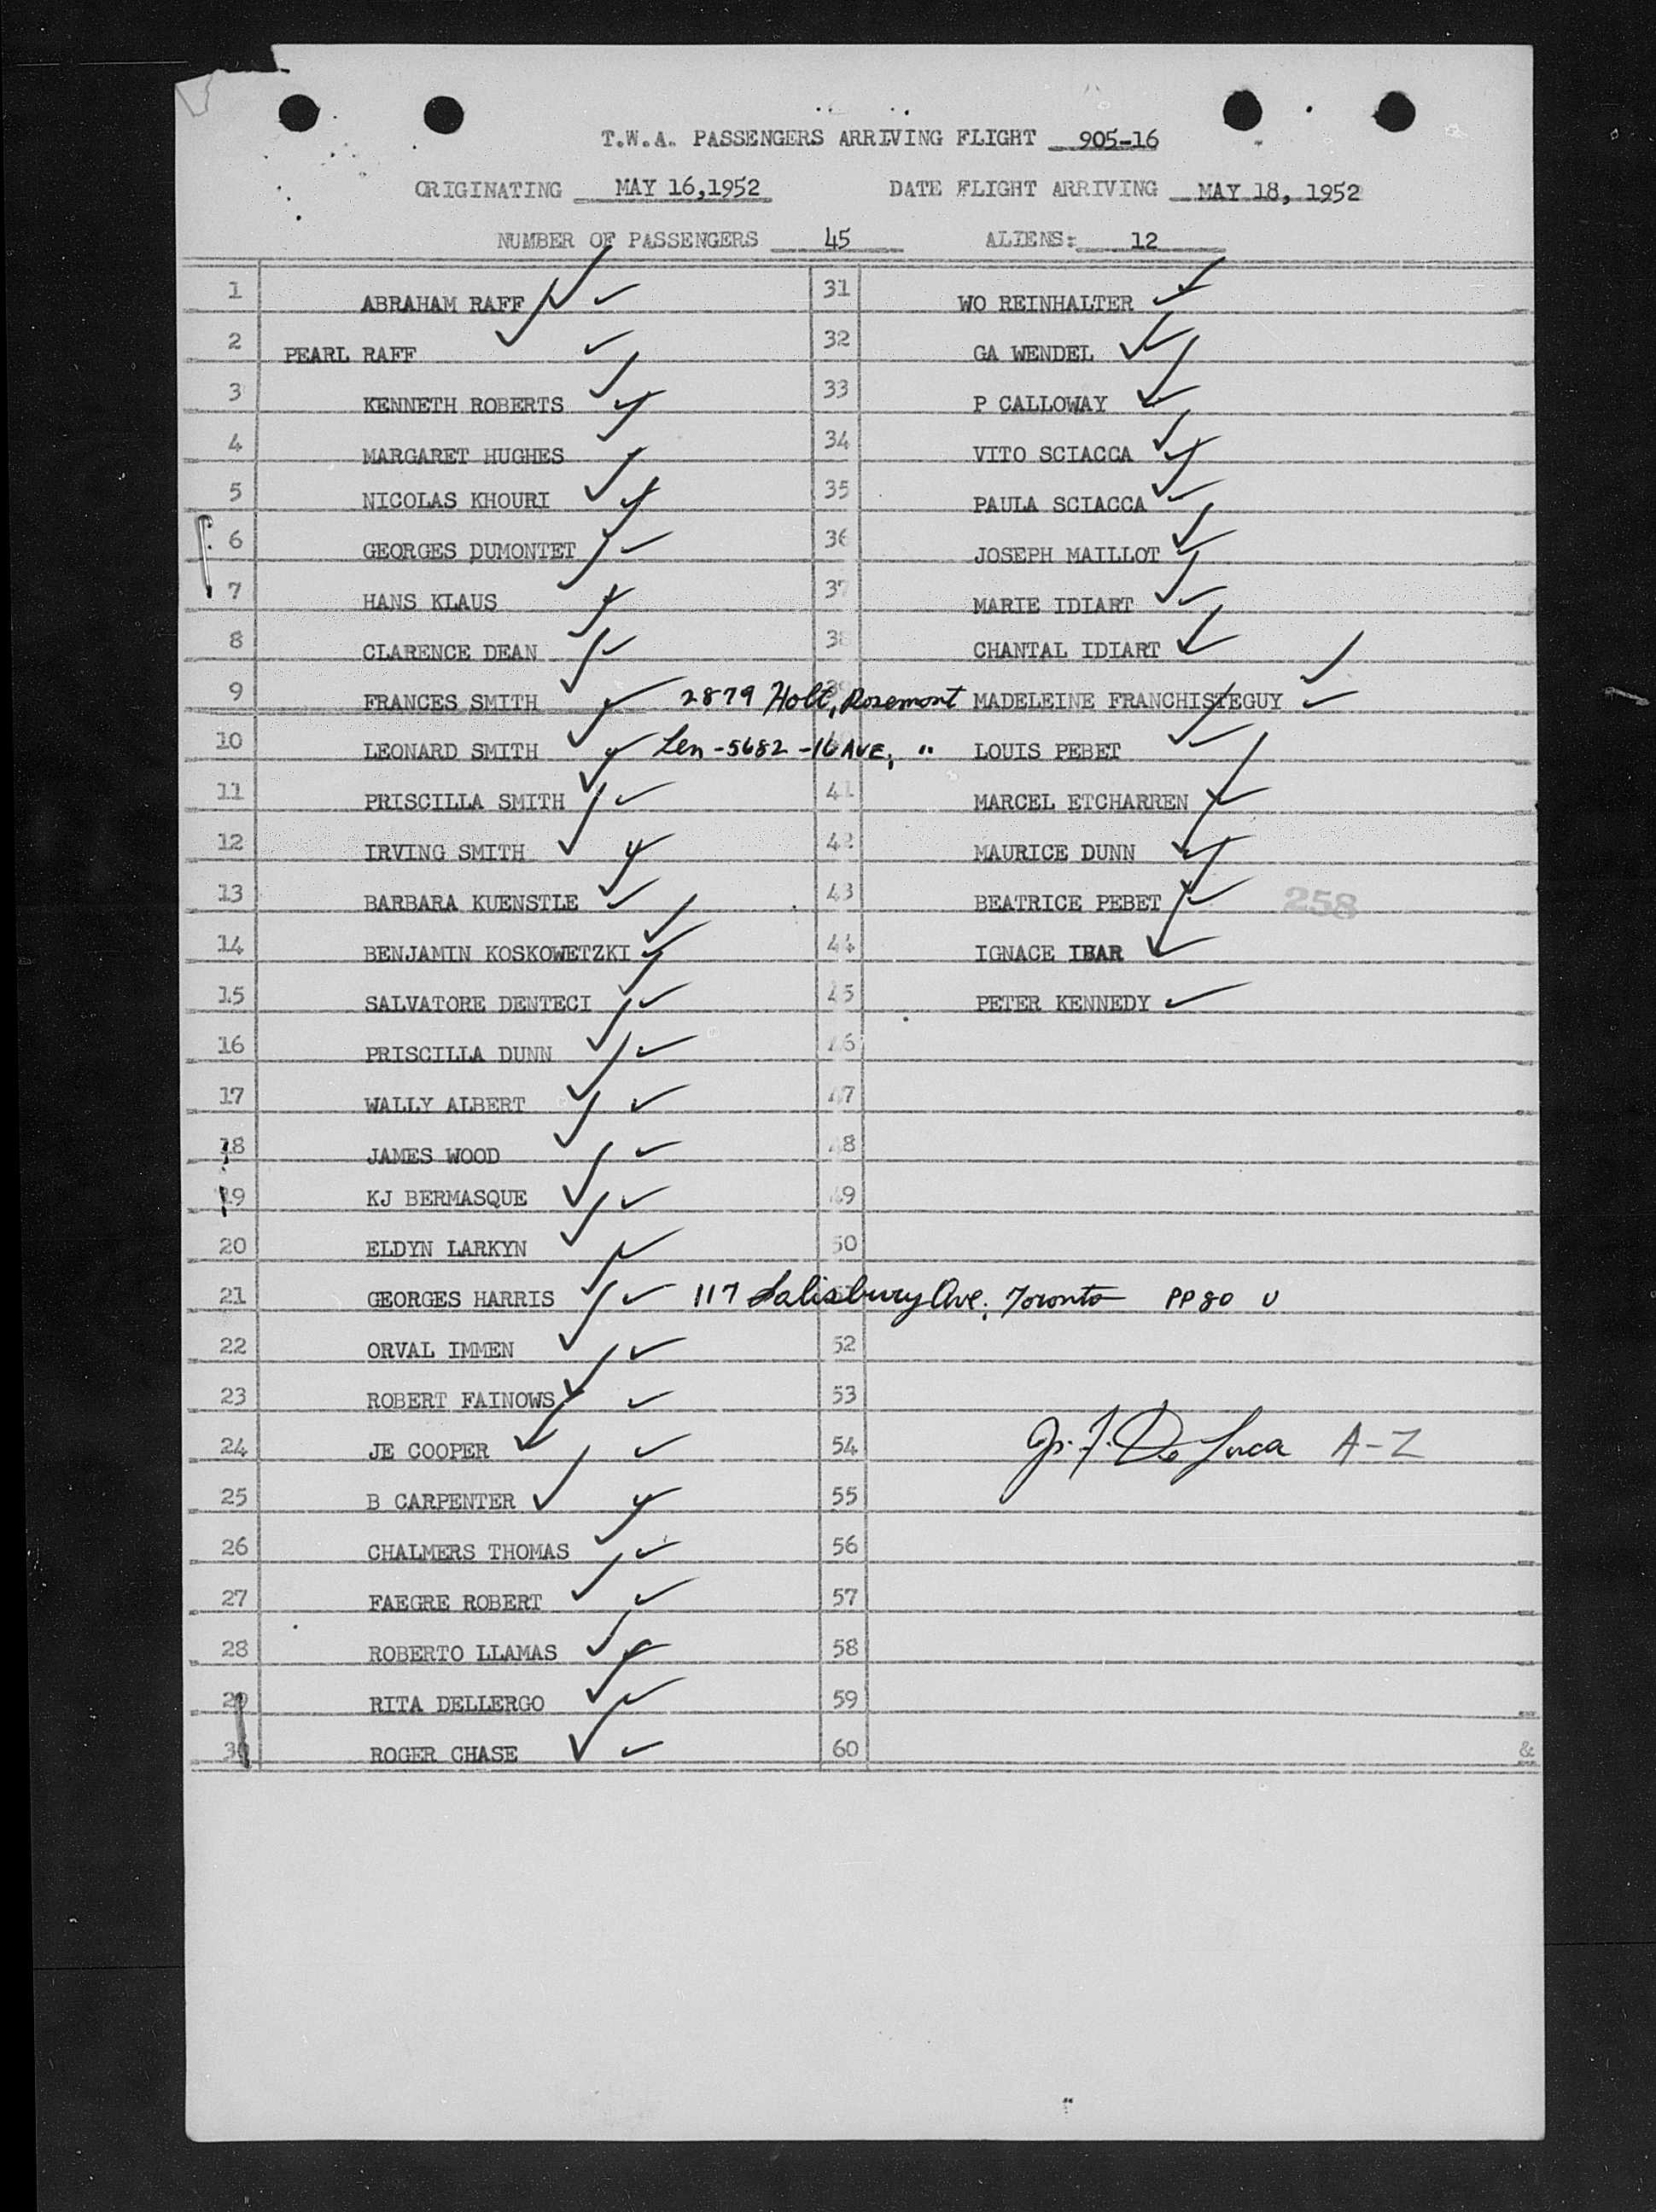 T.W.A. PASSENGERS ARRIVING FLIGHT 905-16
ORIGINATING MAY 16,1952 DATE FLIGHT ARRIVING MAY 18, 1952
NUMBER OF PASSENGERS 45 ALIENS: 12
1 ABRAHAM RAFF 31 WO REINHALTER
2 PEARL RAFF 32 GA WENDEL
3 KENNETH ROBERTS 33 P CALLOWAY
4 MARGARET HUGHES 34 VITO SCIACCA
5 NICOLAS KHOURI 35 PAULA SCIACCA
6 GEORGES DUMONTET 36 JOSEPH MAILLOT
7 HANS KLAUS 37 MARIE IDIART
8 CLARENCE DEAN 38 CHANTAL IDIART
9 FRANCES SMITH 2879 Holt, Rosemont 39 MADELEINE FRANCHISTEGUY
10 LEONARD SMITH Len - 5682 - 16 AVE, " LOUIS PEBET
11 PRISCILLA SMITH 41 MARCEL ETCHARREN
12 IRVING SMITH 42 MAURICE DUNN
13 BARBARA KUENSTLE 43 BEATRICE PEBET 258
14 BENJAMIN KOSKOWETZKI 44 IGNACE IBAR
15 SALVATORE DENTECI 45 PETER KENNEDY
16 PRISCILLA DUNN 46
17 WALLY ALBERT 47
18 JAMES WOOD 48
19 KJ BERMASQUE 49
20 ELDYN LARKYN 50
21 GEORGES HARRIS 117 Salisbury Ave. Toronto PP 80 U
22 ORVAL IMMEN 52
23 ROBERT FAINOWS 53
24 JE COOPER 54 De Luca A-Z
25 B CARPENTER 55
26 CHALMERS THOMAS 56
27 FAEGRE ROBERT 57
28 ROBERTO LLAMAS 58
29 RITA DELLERGO 59
30 ROGER CHASE 60 &